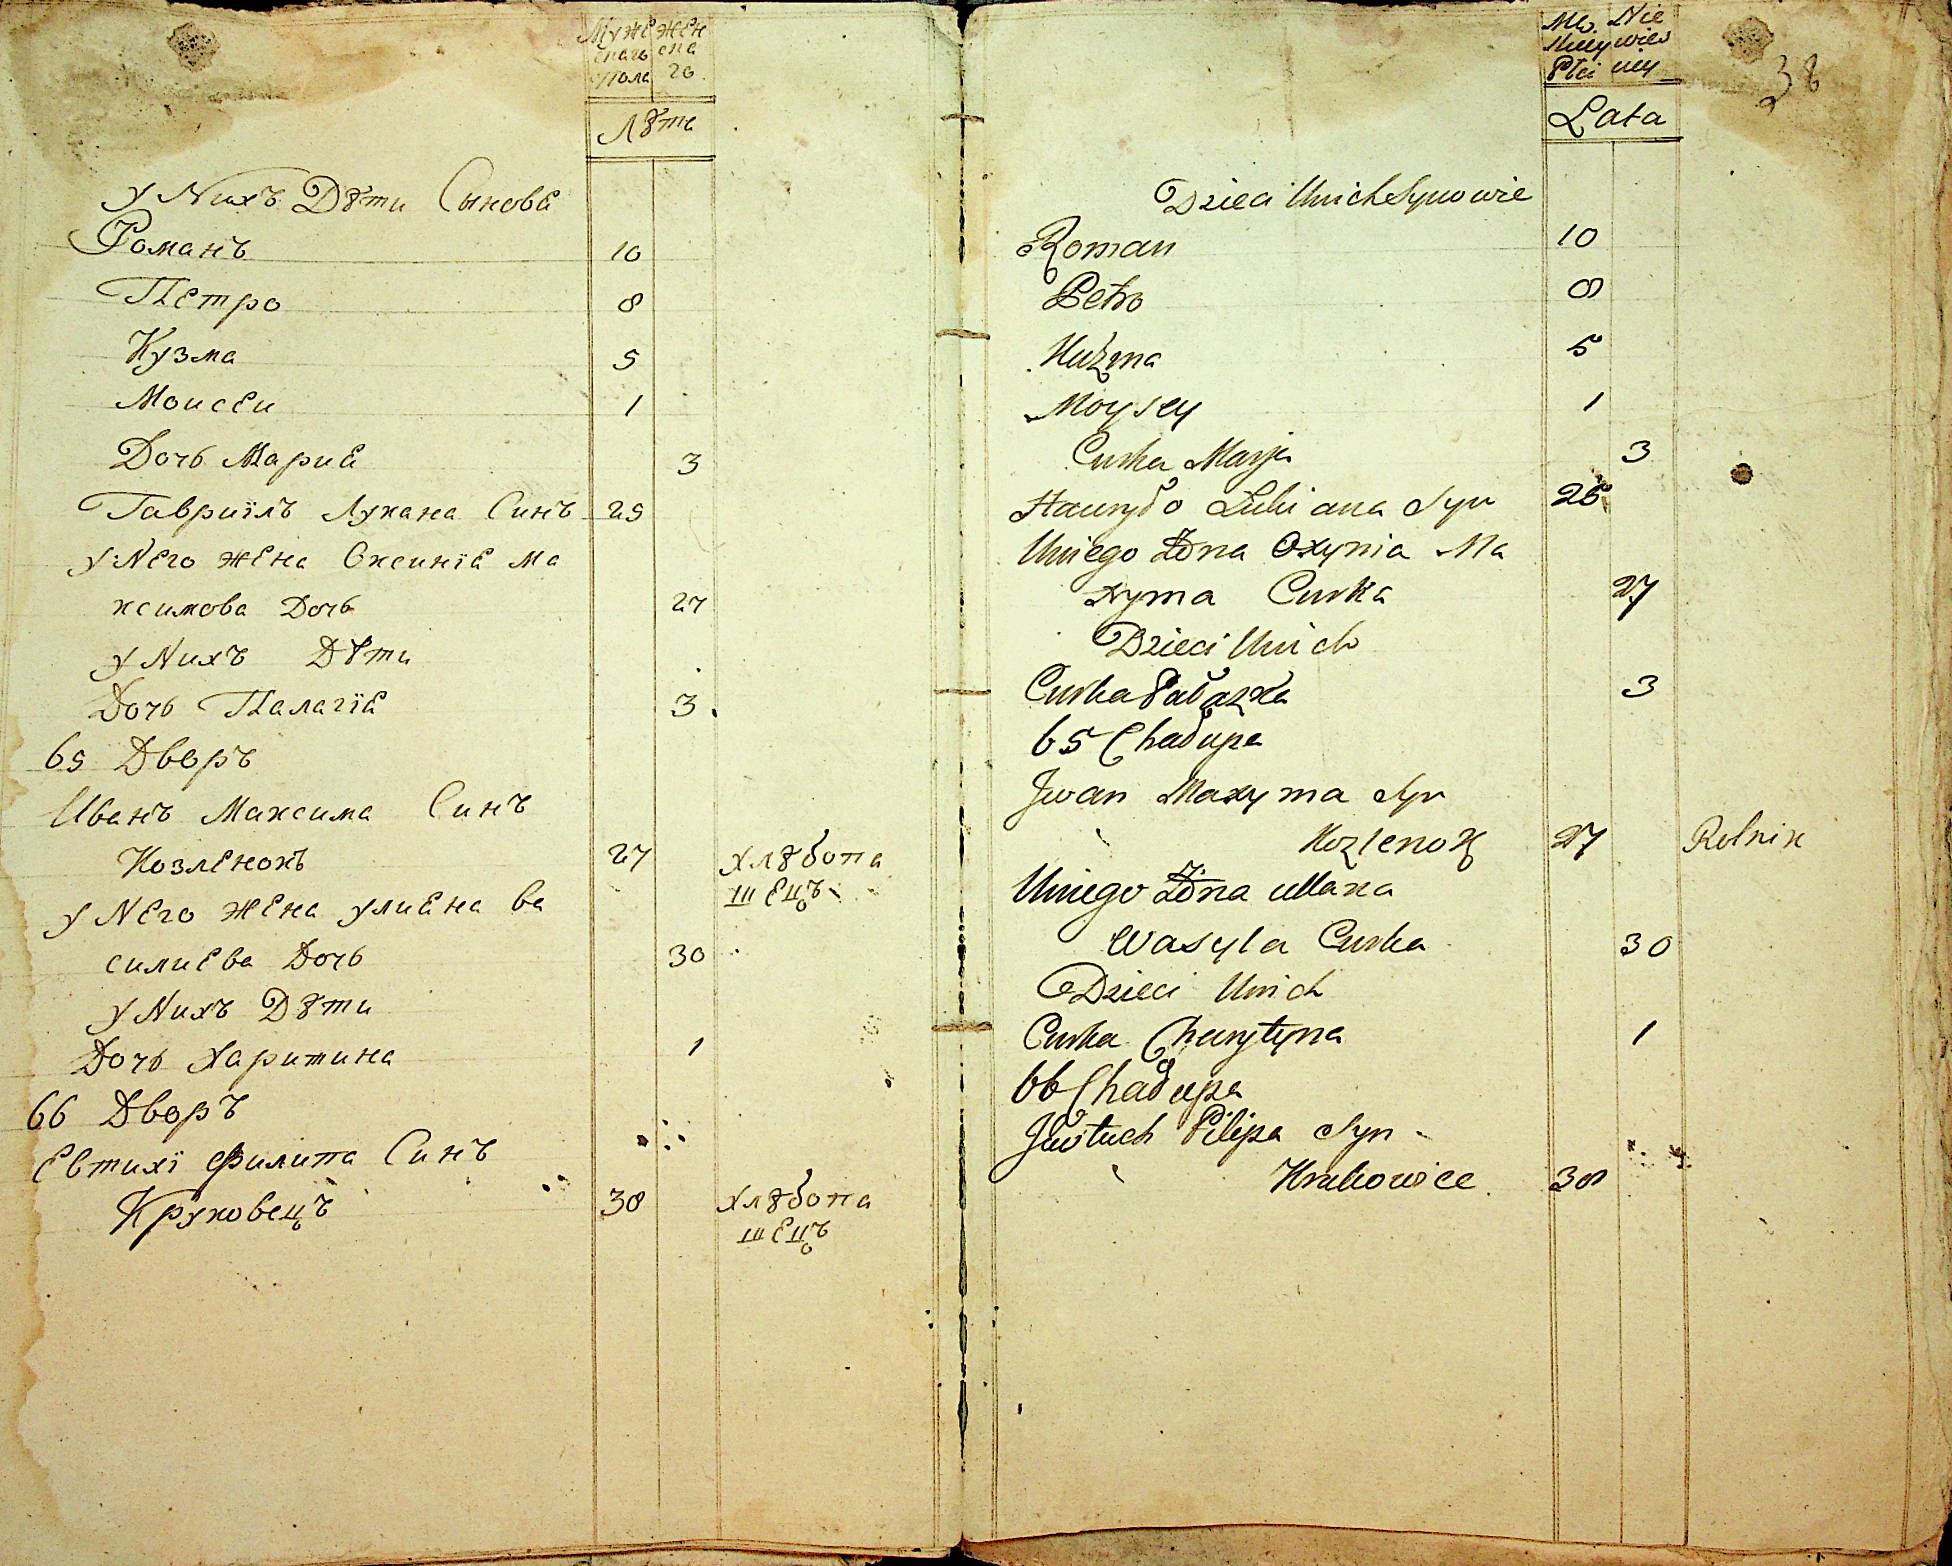 Мужε жεн
скагѡ ска
пола го.
Лѣта
у Нихъ Дѣти Сыновѐ
Романъ 10
Пεтро 8
Кузма 5
Моисεи 1
Дочь Мариѐ 3
Гавриїлъ Лукана Синъ 25
у Нεго жεна Оксиниѐ Ма
ксимова Дочь 27
у Нихъ Дѣти
Дочь Палагїѐ 3
65 Дворъ
Иванъ Максима Синъ
Козлεнокъ 27 хлѣбопа
шεцъ
у Нεго жεна улиѐна ва
силиεва Дочь 30
у Нихъ Дѣти
Дочь Харитина 1
66 Дворъ
Евтихї Филипа Синъ
Круковецъ 38 хлѣбопа
шεцъ
38
Lata
Dzieci Unich Synowie
Roman 10
Petro 8
Kuzma 5
Moysey 1
Curka Marja 3
Hawryło Lukiana Syn 25
Uniego Żona Oxynia Ma
xyma Curka 27
Dzieci Unich
Curka Pałazka 3
65 Chałupa
Jwan Maxyma Syn
Kozlenok 27 Rolnik
Uniego Żona Ullana
Wasyla Curka 30
Dzieci Unich
Curka Charytyna 1
66 Chałupa
Jewtuch Pilipa Syn
Krukowiec 38